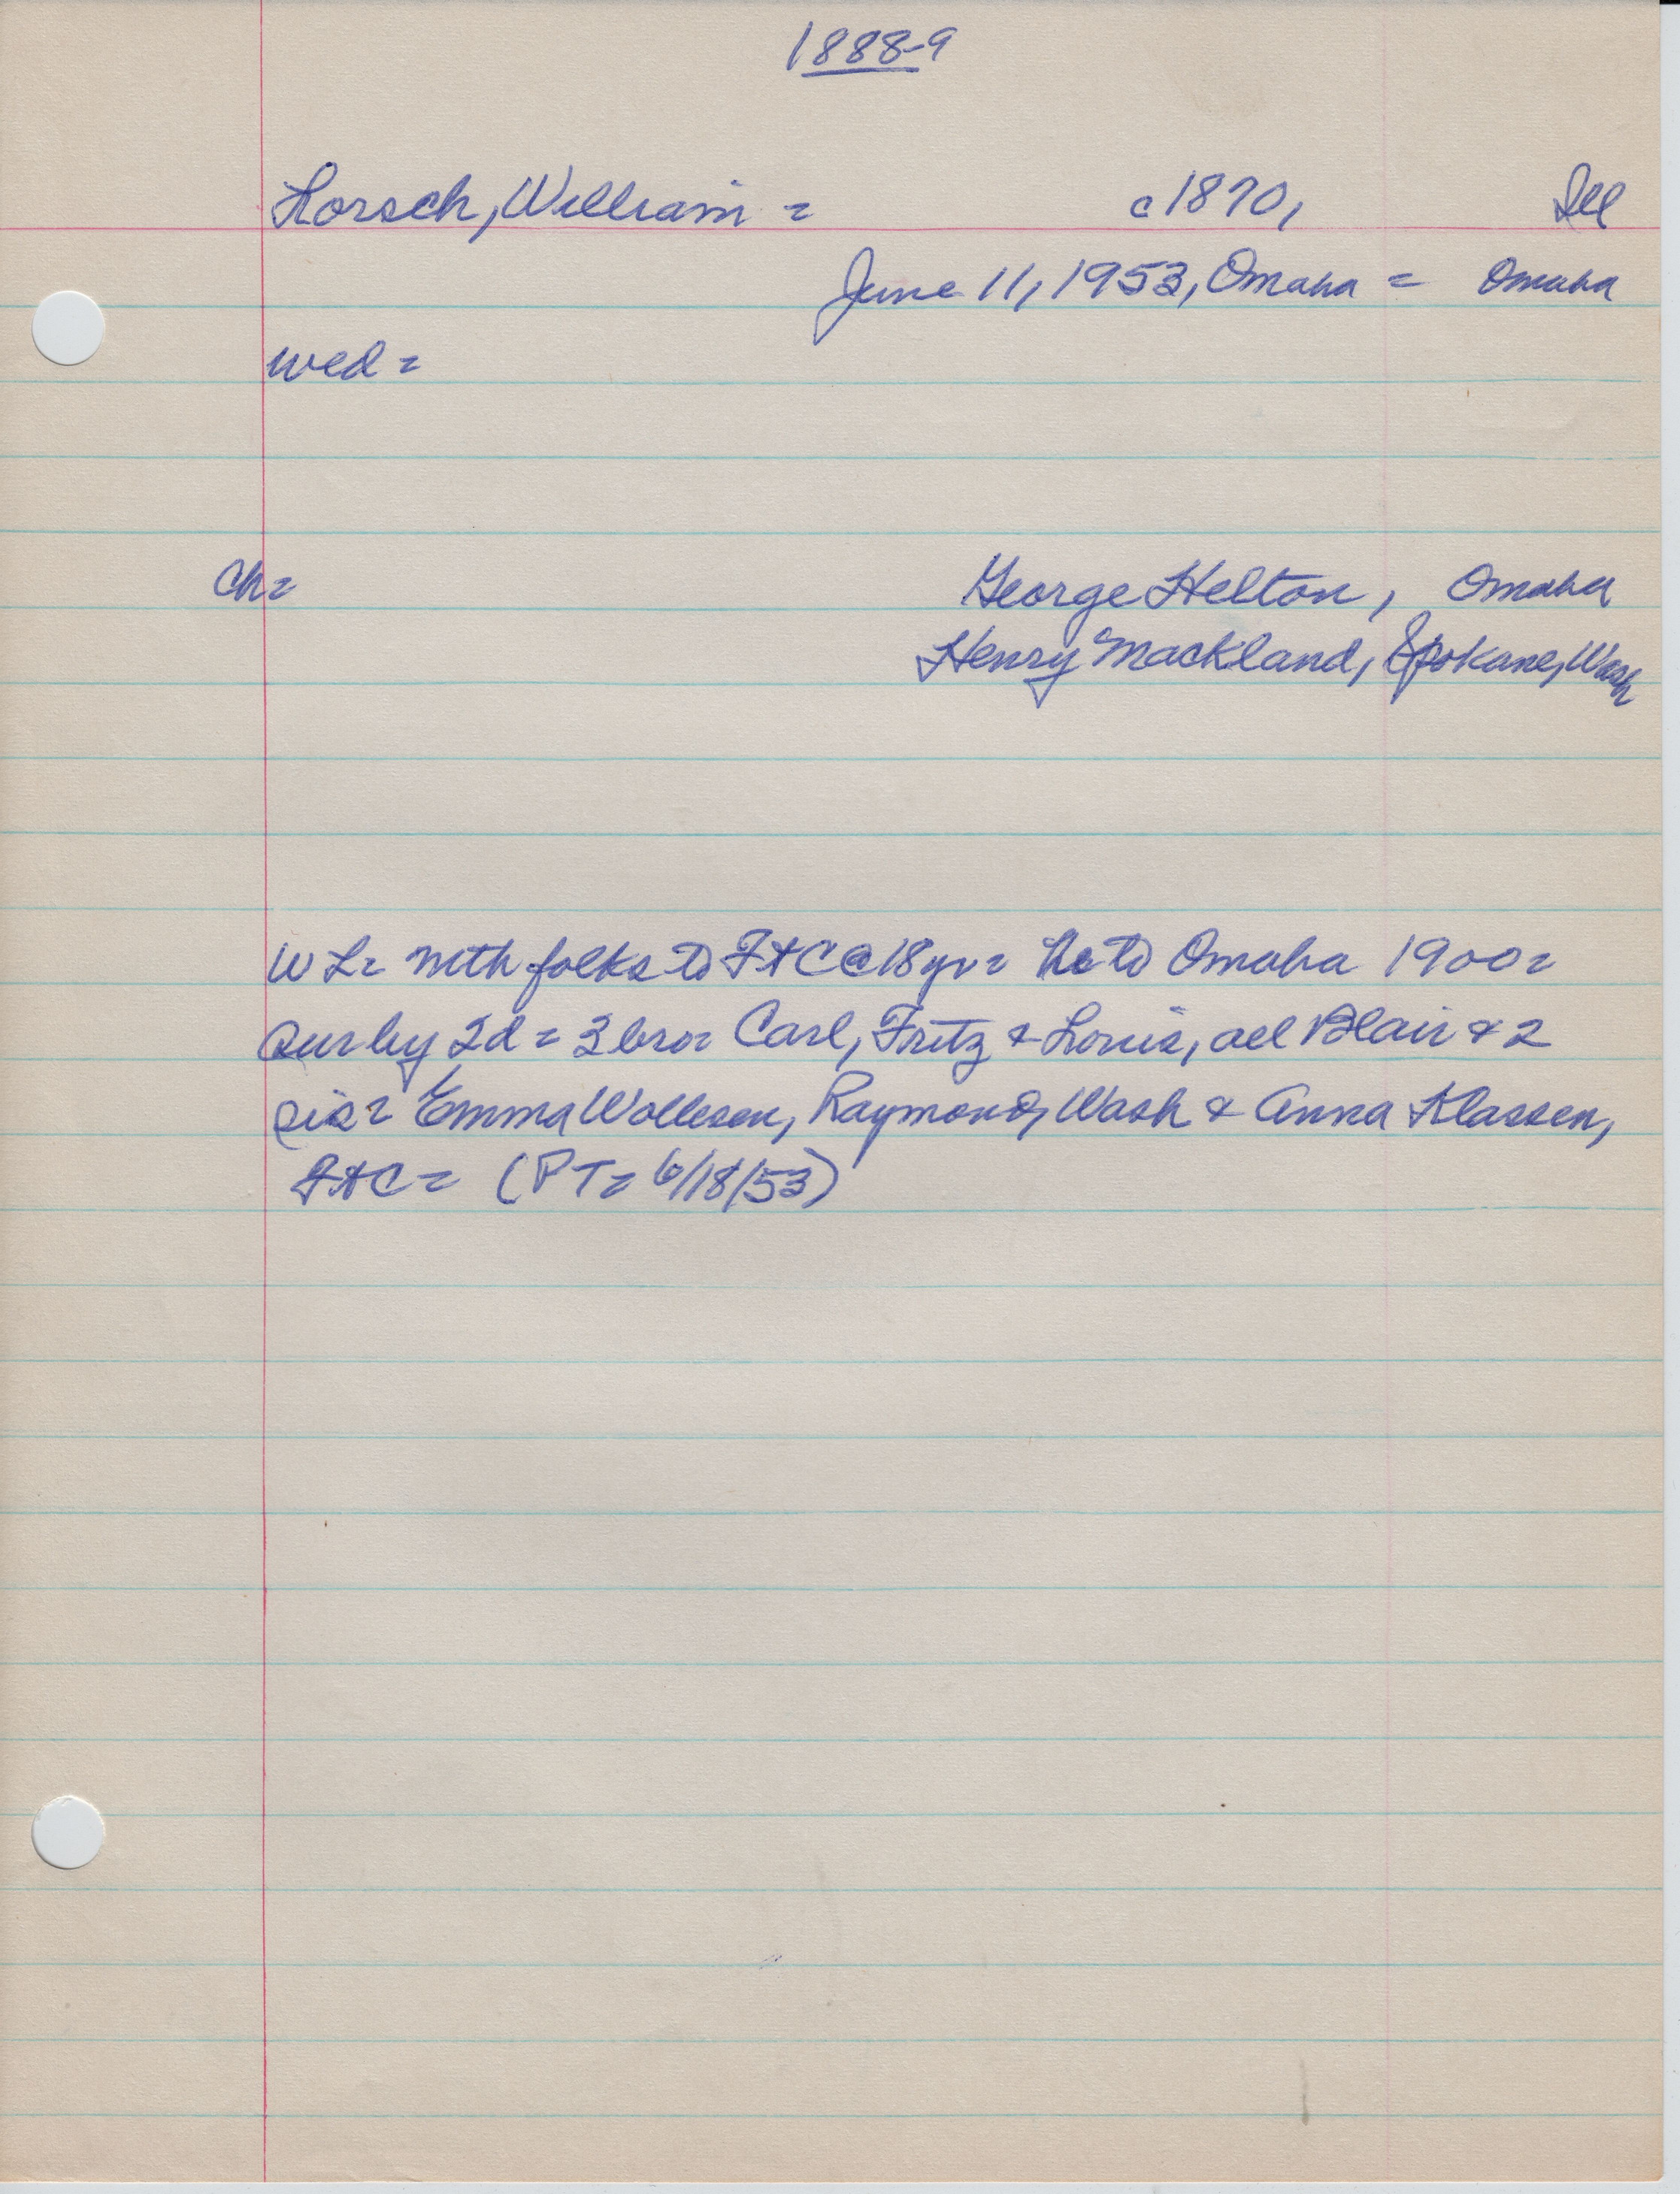 1888-9
Lorsch, William = c1870, Ill
June 11, 1953, Omaha = Omaha
wed =
Ch =
George Helton, Omaha
Henry Mackland, Spokane, Wash
WL = with folks to FtC @ 18 yr = he to Omaha 1900 =
sur by 2d = 3 bro = Carl, Fritz & Louis, all Blair & 2
sis = Emma Wollesen, Raymond, Wash & Anna Klassen,
FtC = (PT = 6/18/53)